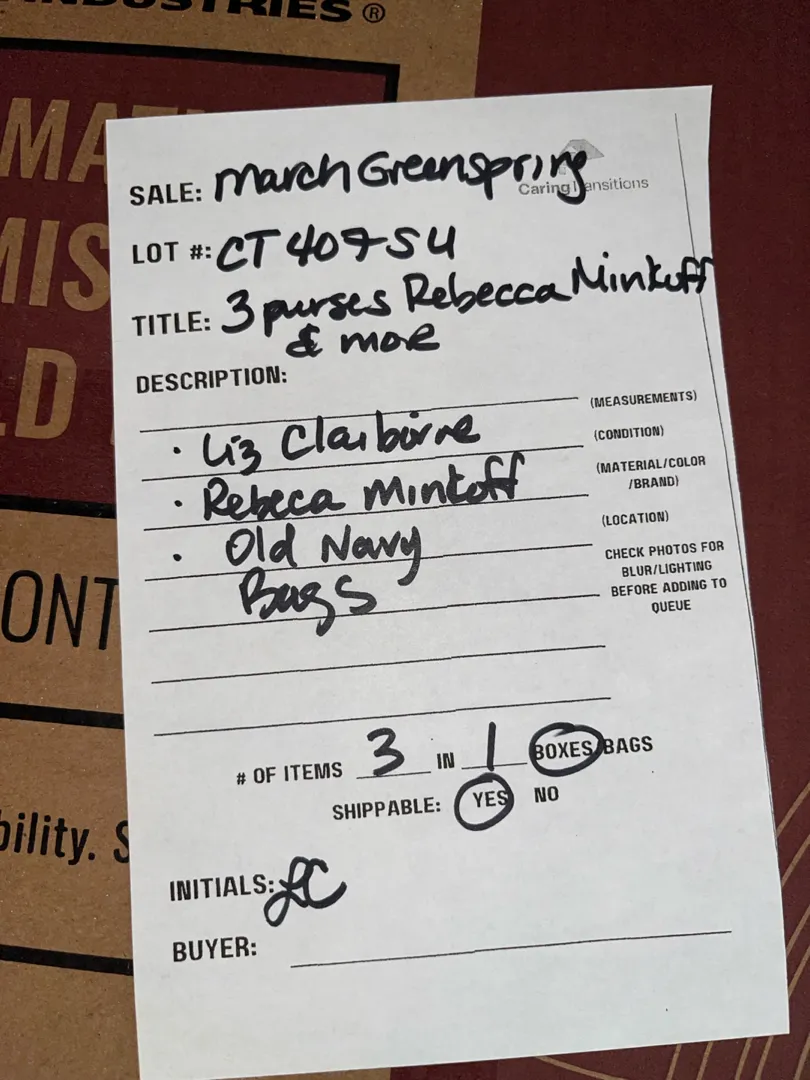 INDUSTRIES ®
SALE: March Greenspring
Caring Transitions
LOT #: CT 407 SU
TITLE: 3 purses Rebecca Minkoff
& more
DESCRIPTION:
(MEASUREMENTS)
· Liz Claiborne
(CONDITION)
· Rebeca Minkoff
(MATERIAL/COLOR
/BRAND)
· Old Navy
(LOCATION)
Bags
CHECK PHOTOS FOR
BLUR/LIGHTING
BEFORE ADDING TO
QUEUE
# OF ITEMS 3 IN 1 BOXES/BAGS
SHIPPABLE: YES NO
INITIALS: LC
BUYER:
ONT
bility. S